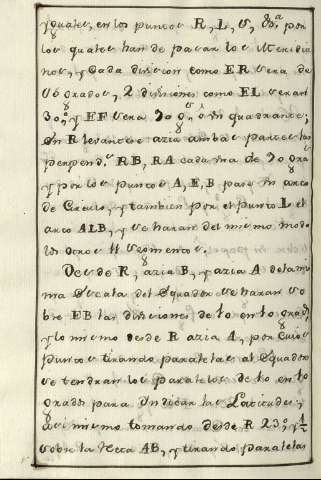 yguales, en los puncos R, L, S, &.ª por
los quales han de pasar los Meridia
nos, y Cada divicion como ER sera de
grados, y 2 diviciones como EL seran
30, y EF sera 90 en quadrante;
En R levantese azia ambas partes las
perpend.s RB, RA cada una de 90 gra
y por los puncos A, E, B pase un arco
de Circulo, y tambien por el punto L el
arco ALB, y se haran del mismo modo
los otros 11 segmentos.
Desde R, azia B, y azia A de la mis
ma Escala del Equador se haran so
bre EB las diviciones de 10 en 10 grad
y lo mismo desde R azia A, por cuios
puncos tirando paralelas al Equador
se tendran los paralelos de 10 en 10
grados para Yndicar las Latitudes, y
asi mismo tomando desde R 23, y ½
sobre la Recta AB, y tirando paralelas